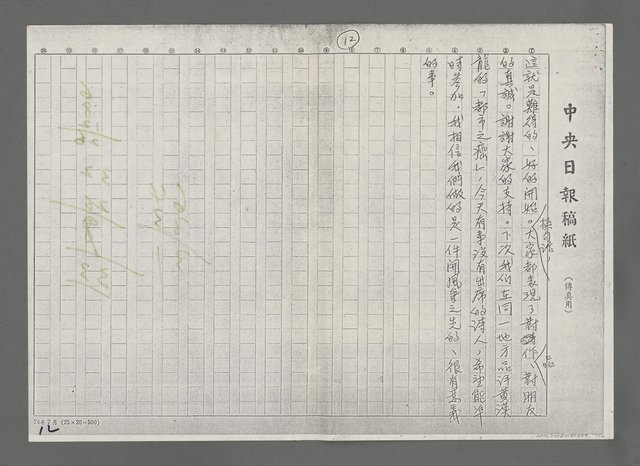 中央日報稿紙
(傳真用)
12
這就是難得的、好的開始。大家都表現了對作品、對朋友
的真誠。謝謝大家的支持。下次我们在同一地方品评黄漢
龍的「都市之癌」,今天有事沒有出席的诗人,希望能準
時參加。我相信我們做的是一件開風氣之先的、很有意義
的事。
74年7月(25×20=500)
12